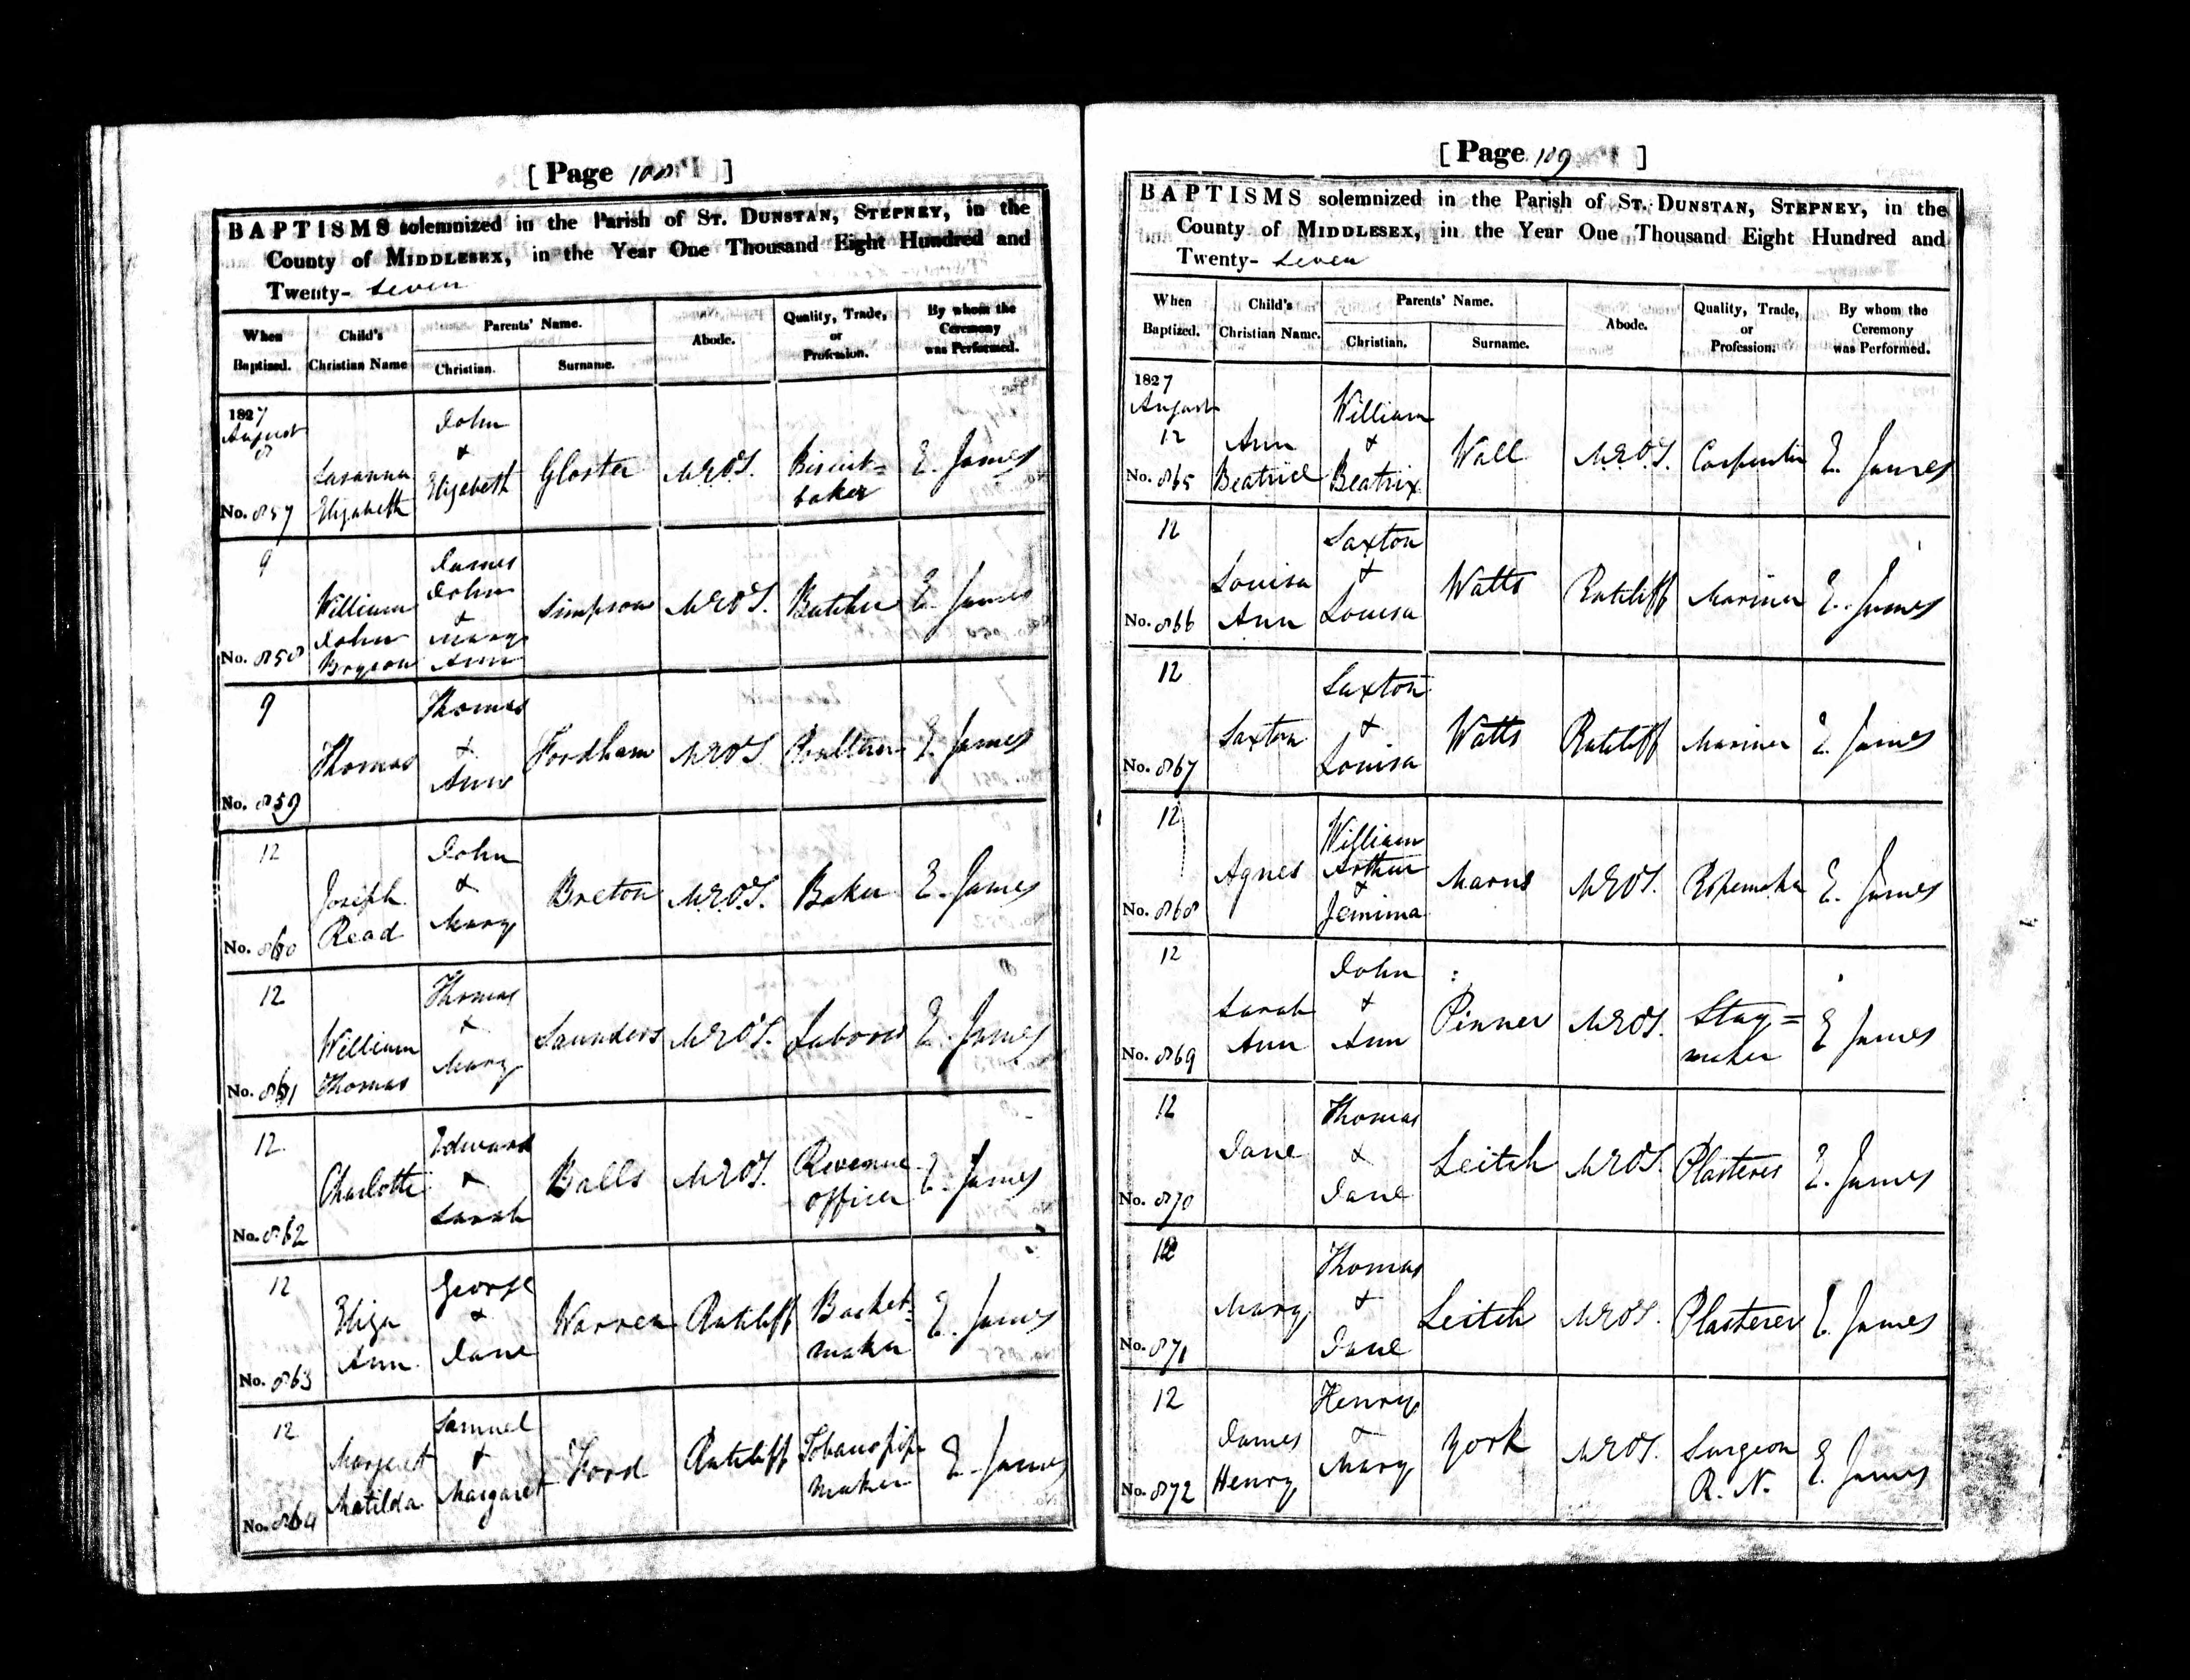 [ Page 108 ]
BAPTISMS solemnized in the Parish of ST. DUNSTAN, STEPNEY, in the
County of MIDDLESEX, in the Year One Thousand Eight Hundred and
Twenty- seven
When Baptized. Child's Christian Name Parents' Name. Christian. Surname. Abode. Quality, Trade, or Profession. By whom the Ceremony was Performed.
1827 August 8 No. 857 Susanna Elizabeth John & Elizabeth Gloster M.E.O.T. Biscuit= baker E. James
9 No. 858 William John James John & Mary Ann Simpson M.E.O.T. Butcher E. James
9 No. 859 Thomas Thomas & Ann Fordham M.E.O.T. E. James
12 No. 860 Joseph Read John & Mary Breton M.E.O.T. Baker E. James
12 No. 861 William Thomas Thomas & Mary Saunders M.E.O.T. Laborer E. James
12 No. 862 Charlotte Edward & Sarah Balls M.E.O.T. Revenue officer E. James
12 No. 863 Eliza Ann George & Jane Warren Ratcliff Basket= maker E. James
12 No. 864 Margaret Matilda Samuel & Margaret Ford Ratcliff Tobacco pipe maker E. James
[ Page 109 ]
BAPTISMS solemnized in the Parish of ST. DUNSTAN, STEPNEY, in the
County of MIDDLESEX, in the Year One Thousand Eight Hundred and
Twenty- seven
When Baptized. Child's Christian Name. Parents' Name. Christian. Surname. Abode. Quality, Trade, or Profession. By whom the Ceremony was Performed.
1827 August 12 No. 865 Ann Beatrice William & Beatrix Wall M.E.O.T. Carpenter E. James
12 No. 866 Louisa Ann Saxton & Louisa Watts Ratcliff Mariner E. James
12 No. 867 Saxton Saxton & Louisa Watts Ratcliff Mariner E. James
12 No. 868 Agnes William Arthur & Jemima M.E.O.T. Ropemaker E. James
12 No. 869 Sarah Ann John & Ann Pinner M.E.O.T. Stay= maker E. James
12 No. 870 Jane Thomas & Jane Leitch M.E.O.T. Plasterer E. James
12 No. 871 Mary Thomas & Jane Leitch M.E.O.T. Plasterer E. James
12 No. 872 James Henry Henry & Mary York M.E.O.T. Surgeon R.N. E. James